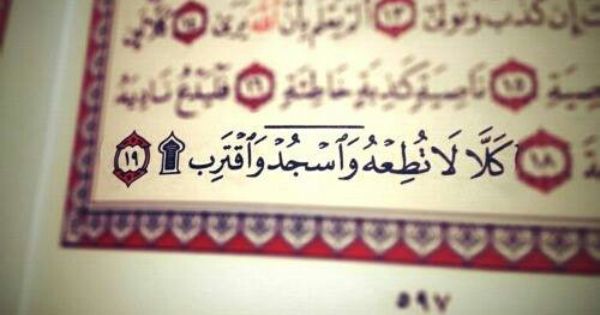 إِن كَذَّبَ وَتَوَلَّىٰٓ ١٣ أَلَمْ يَعْلَم بِأَنَّ ٱللَّهَ يَرَىٰ ١٤ كَلَّا
١٥ نَاصِيَةٍ كَٰذِبَةٍ خَاطِئَةٍ ١٦ فَلْيَدْعُ نَادِيَهُۥ
١٨ كَلَّا لَا تُطِعْهُ وَٱسْجُدْ وَٱقْتَرِب ۩ ١٩
٥٩٧